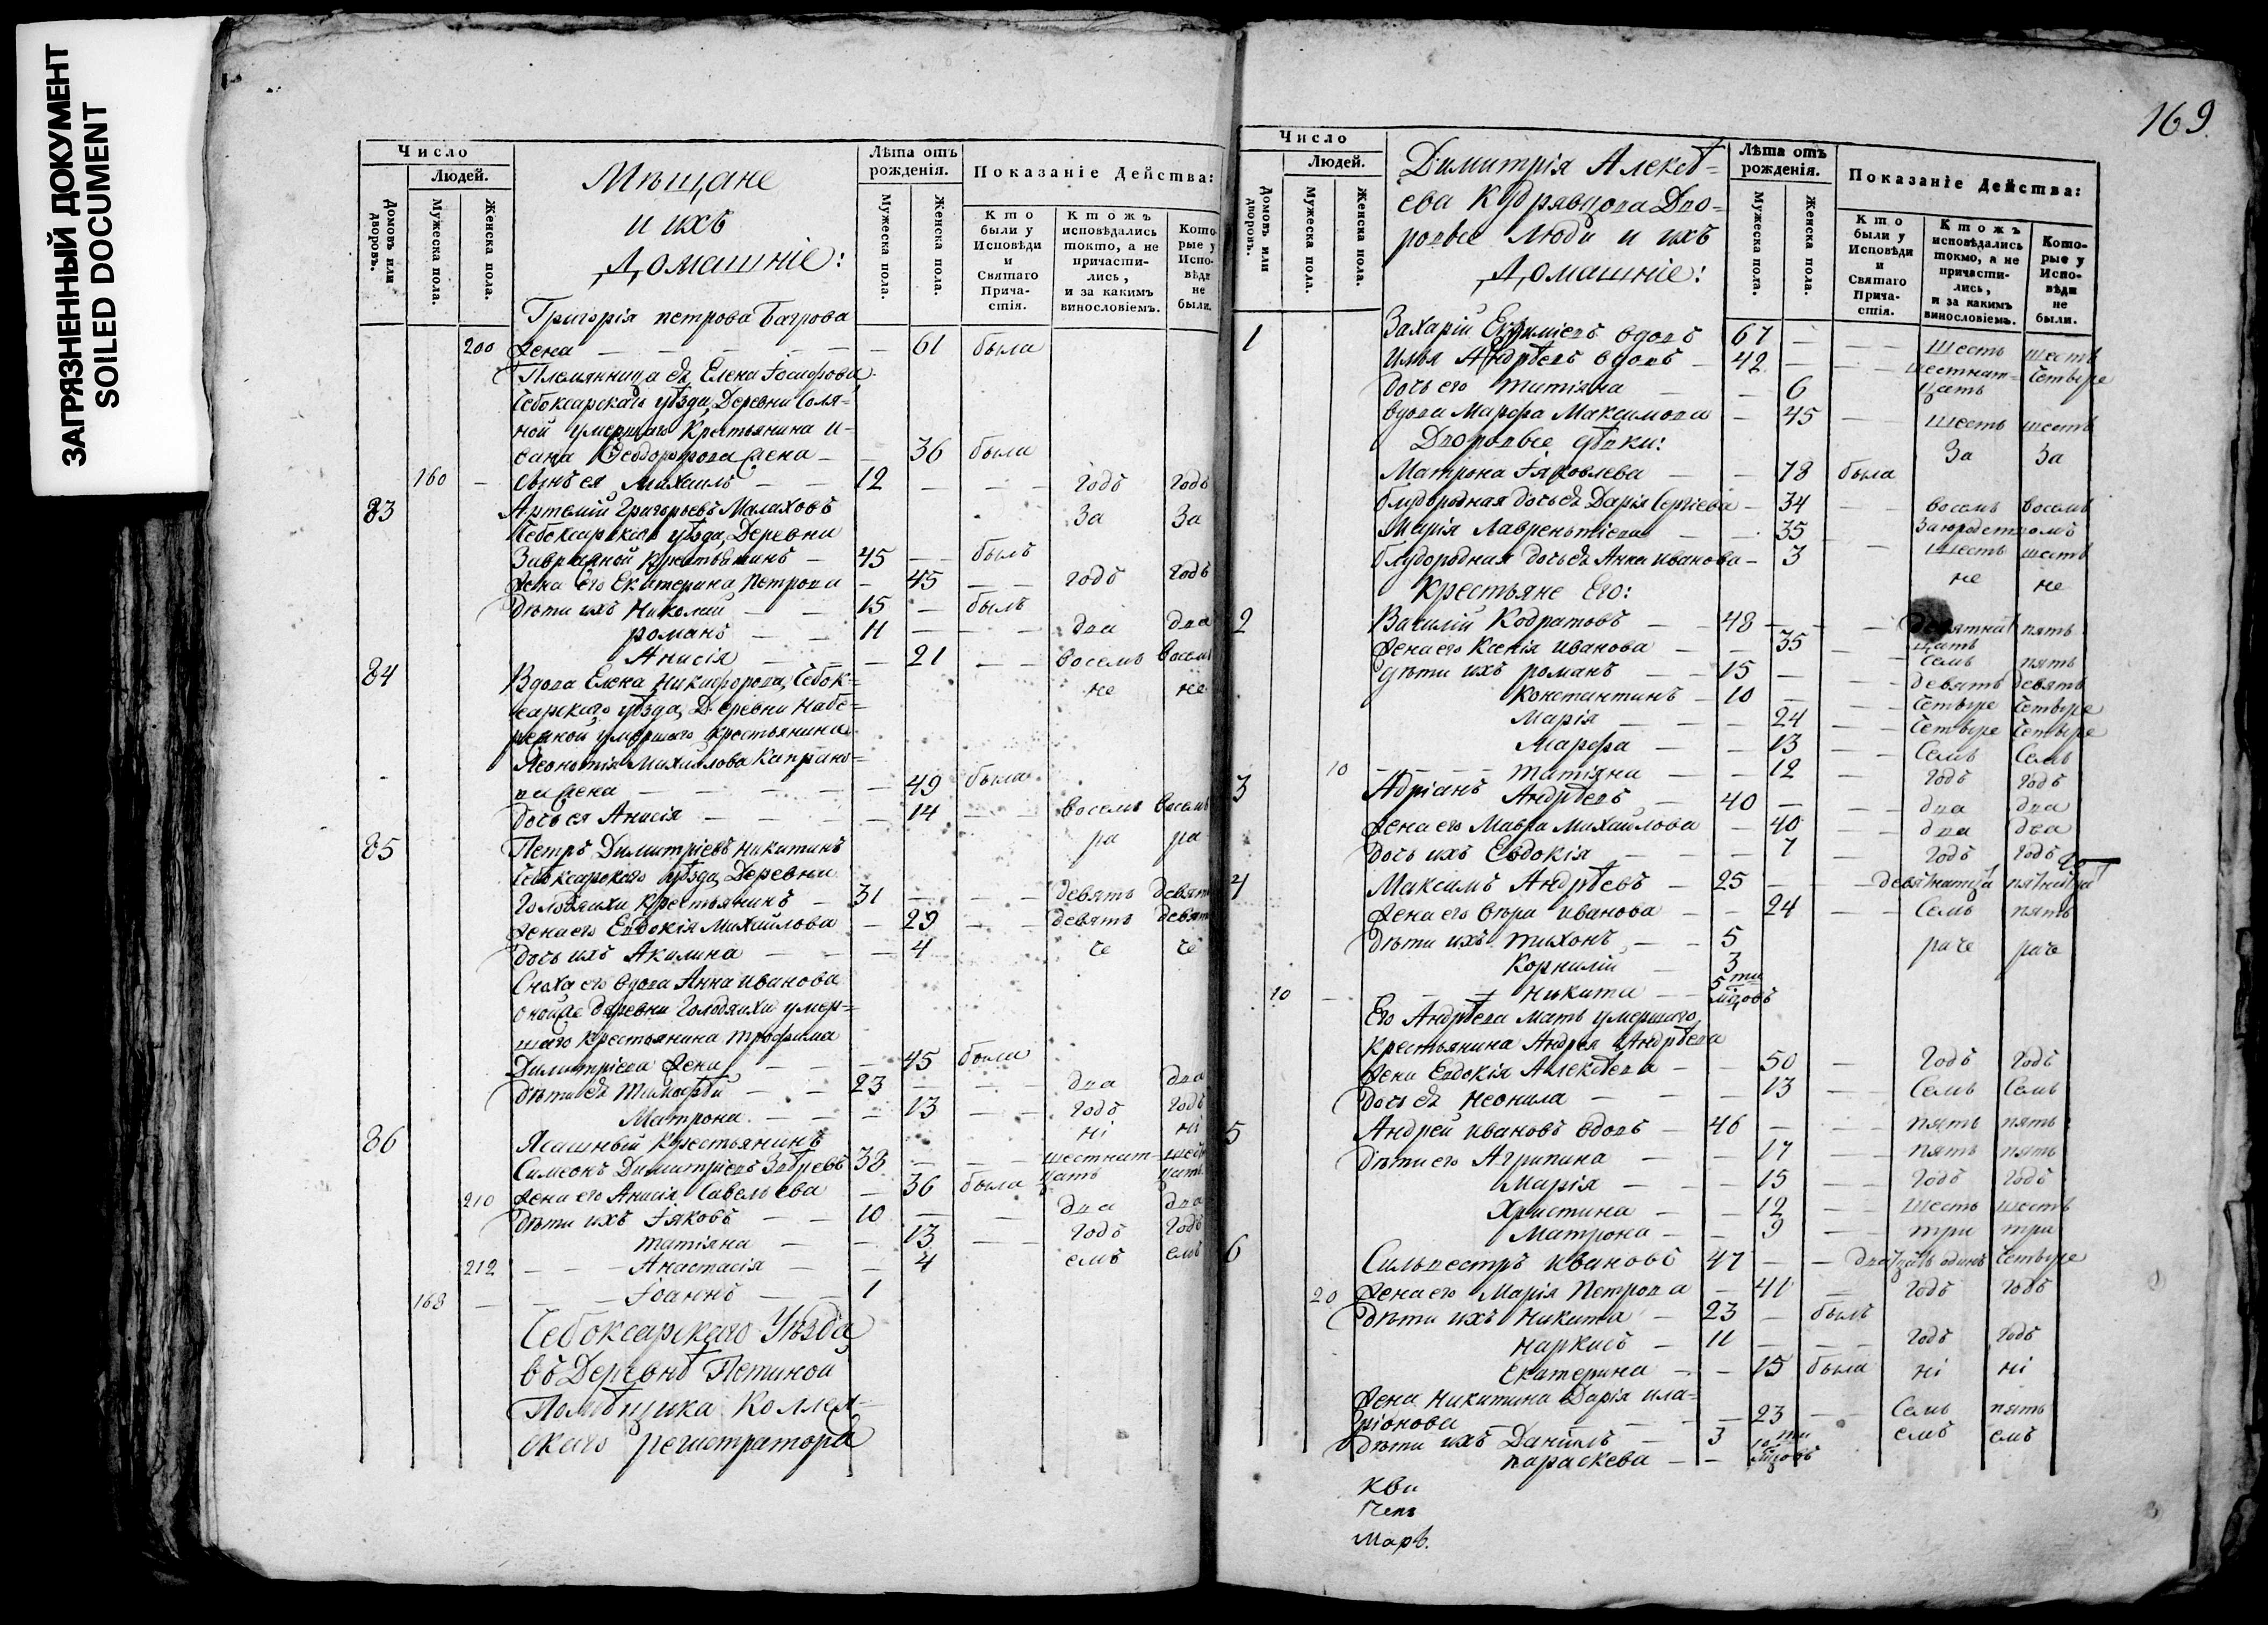 ЗАГРЯЗНЕННЫЙ ДОКУМЕНТ
SOILED DOCUMENT
Число
Людей.
Домовъ или дворовъ.
Мужеска пола.
Женска пола.
Мѣщане
и ихъ
Домашніе:
Лѣта отъ рожденія.
Мужеска пола.
Женска пола.
Показаніе Действа:
Кто были у Исповѣди и Святаго Причастія.
Ктожъ исповѣдались токмо, а не причастились, и за какимъ винословіемъ.
Которые у Исповѣди не были.
Григорія петрова Багрова
200 жена — 61 была
Племянница ея Елена
Чебоксарскаго уѣзда, Деревни Соля=
ной умершаго Крестьянина и=
вана жена — 36 была
160 — сынъ ея Михаилъ — 12 — годъ годъ
83 Артемій Григорьевъ Малаховъ за за
Чебоксарскаго уѣзда, Деревни
Завражной крестьянинъ — 45 — былъ
жена его Екатерина Петрова — 45 — годъ годъ
Дѣти ихъ Николай — 15 — былъ
романъ — 11 — два два
Анисія — 21 — восемь восемь
84 Вдова Елена Никифорова, Чебок= не не
сарскаго уѣзда, Деревни Набе=
режной умершаго крестьянина
Леонтія Михайлова
ва жена — 49 была
дочь ея Анисія — 14 — восемь восемь
85 Петръ Димитріевъ Никитинъ ра ра
Чебоксарскаго уѣзда, Деревни
Голодяихи крестьянинъ — 31 — девять девять
жена его Евдокія Михайлова — 29 — девять девять
дочь ихъ Акилина — 4 че че
Сноха его вдова Анна иванова
оной же деревни Голодяихи умер=
шаго крестьянина трофима
Димитріева жена — 45 была
дѣти ея Тимофѣй — 23 — два два
Матрона — 13 — годъ годъ
86 Ясашный крестьянинъ ні ні
Симеонъ Димитріевъ 38 — шестнат= шест
210 жена его Анисія Савельева — 36 была цать цать
дѣти ихъ Іяковъ — 10 — два два
татіяна — 13 — годъ годъ
212 — Анастасія — 4 емъ емъ
168 — Іоаннъ — 1
Чебоксарскаго Уѣзда
въ Деревнѣ Пятиной
Помѣщика Коллеж=
скаго регистратора
169.
Число
Людей.
Домовъ или дворовъ.
Мужеска пола.
Женска пола.
Димитрія Алексѣ=
ева Кудрявцова Дво=
ровые люди и ихъ
Домашніе:
Лѣта отъ рожденія.
Мужеска пола.
Женска пола.
Показаніе Действа:
Кто были у Исповѣди и Святаго Причастія.
Ктожъ исповѣдались токмо, а не причастились, и за какимъ винословіемъ.
Которые у Исповѣди не были.
1 Захарій Евфиміевъ вдовъ 67 — шесть шесть
Илья Андрѣевъ вдовъ — 42 — шестнат= четыре
дочь его татіяна — 6 цать
вдова Марфа Максимова — 45 — шесть шесть
Дворовые дѣвки: за за
Матрона Іяковлева — 78 была
дочь ея Дарія Сергіева — 34 — восемь восемь
Марія Лаврентіева — 35
дочь ея Анна иванова — 3 шесть шесть
Крестьяне Его: не не
2 Василій Кодратовъ — 48 — пять
жена его Ксенія иванова — 35 — семь пять
дѣти ихъ романъ — 15 — девять девять
Константинъ — 10 — четыре четыре
Марія — 24 — четыре четыре
Марфа — 13 — семь семь
10 — татіяна — 12 — годъ годъ
3 Адріанъ Андрѣевъ — 40 — два два
жена его Мавра Михайлова — 40 — два два
дочь ихъ Евдокія — 7 — годъ годъ
4 Максимъ Андрѣевъ — 25 —
жена его вѣра иванова — 24 — семь пять
дѣти ихъ тихонъ — 5 раче раче
Корнилій — 3
10 — никита — 5ти мцовъ
Его Андрѣева мать умершаго
крестьянина Андрея Андрѣева
жена Евдокія Алексѣева — 50 — годъ годъ
дочь ея неонила — 13 — семь семь
5 Андрей ивановъ вдовъ — 46 — пять пять
дѣти его Агрипина — 17 — пять пять
Марія — 15 — годъ годъ
Христина — 12 — шесть шесть
Матрона — 9 — три три
6 Сильвестръ ивановъ 47 — одинъ четыре
20 жена его Марія Петрова — 41 — годъ годъ
дѣти ихъ никита — 23 — былъ
наркисъ — 11 — годъ годъ
Екатерина — 15 была ні ні
жена никитина Дарія ила=
ріонова — 23 — семь пять
дѣти ихъ Даніилъ — 3 емъ емъ
параскева — 10ти мцовъ